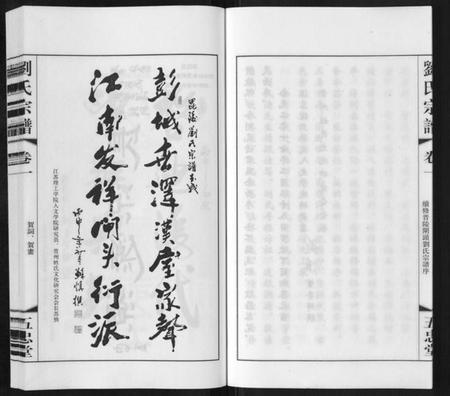 劉氏宗譜
卷一
續修晉陵閘頭劉氏宗譜序
五忠堂
毘陵劉氏宗譜
彭城世澤漢室家聲
江南发祥闸头衍派
江苏理工学院人文学院研究员、常州姓氏文化研究会会长
劉氏宗譜
卷一
賀詞、賀畫
五忠堂